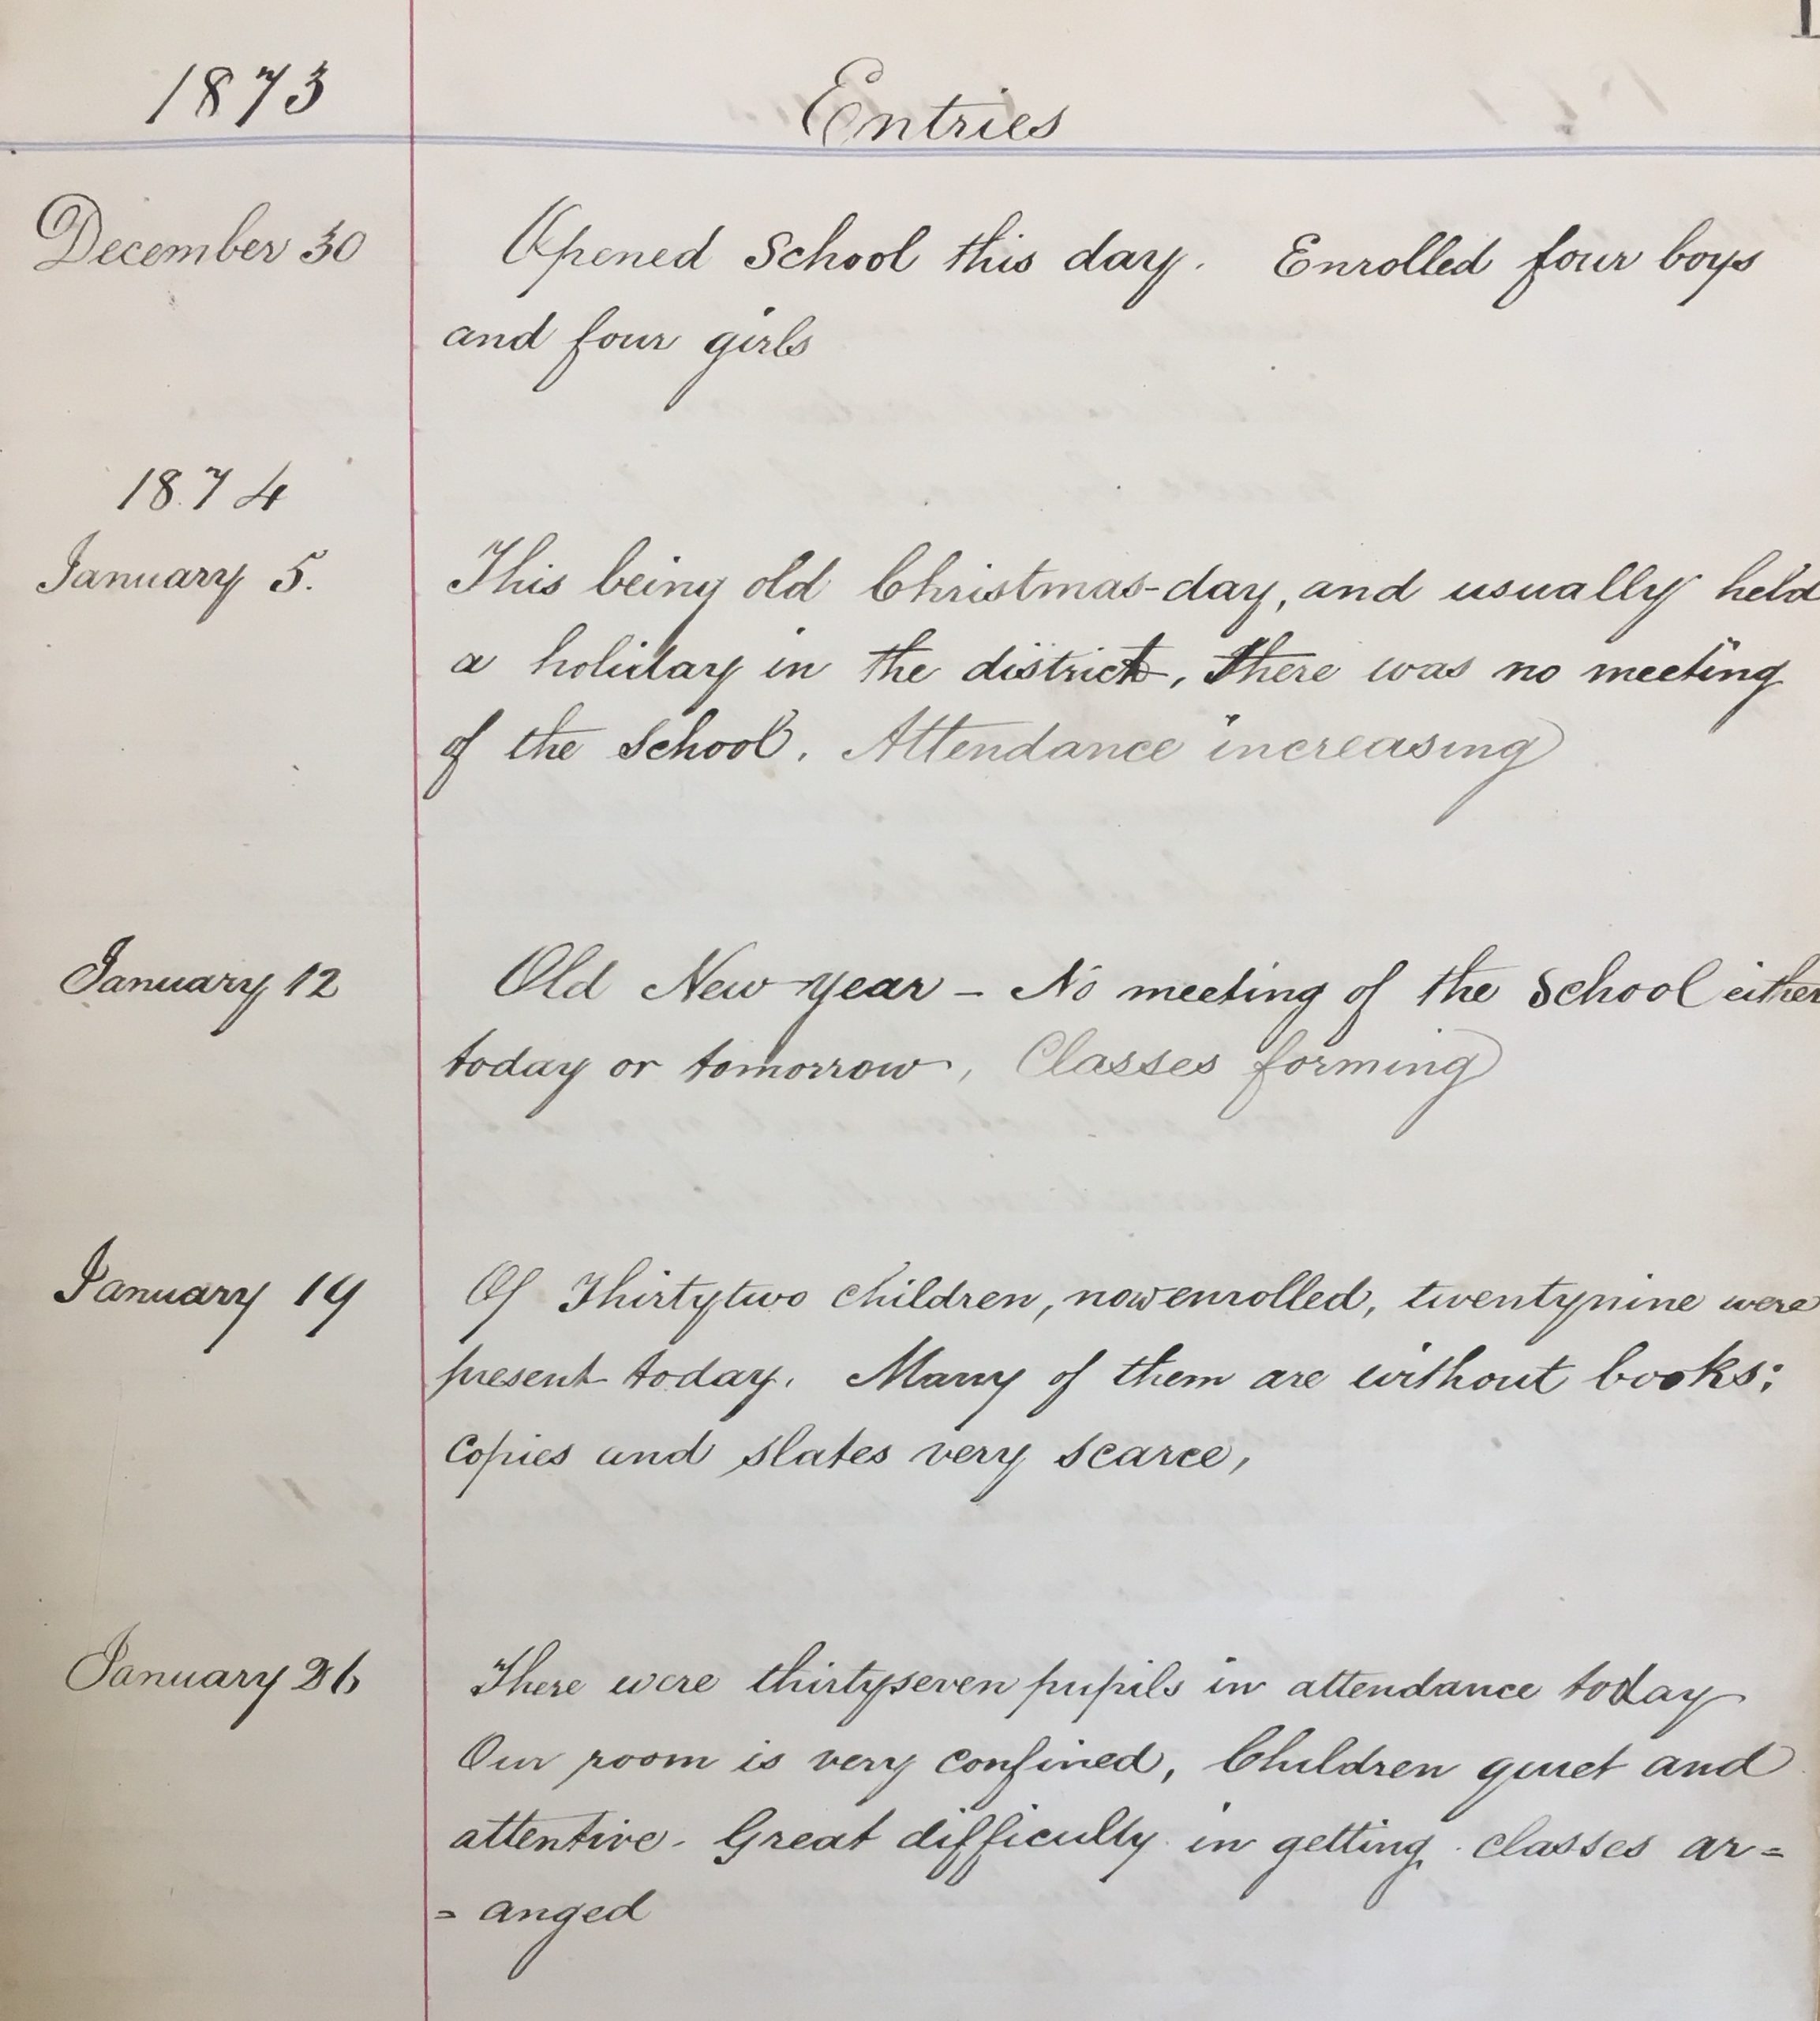 1873
Entries
December 30 Opened School this day. Enrolled four boys
and four girls
1874
January 5. This being old Christmas-day, and usually held
a holiday in the district, there was no meeting
of the School. Attendance increasing
January 12 Old New-year - No meeting of the School either
today or tomorrow, Classes forming
January 19 Of Thirtytwo children, now enrolled, twentynine were
present today. Many of them are without books;
Copies and slates very scarce,
January 26 There were thirtyseven pupils in attendance today
Our room is very confined, Children quiet and
attentive. Great difficulty in getting classes ar=
=anged